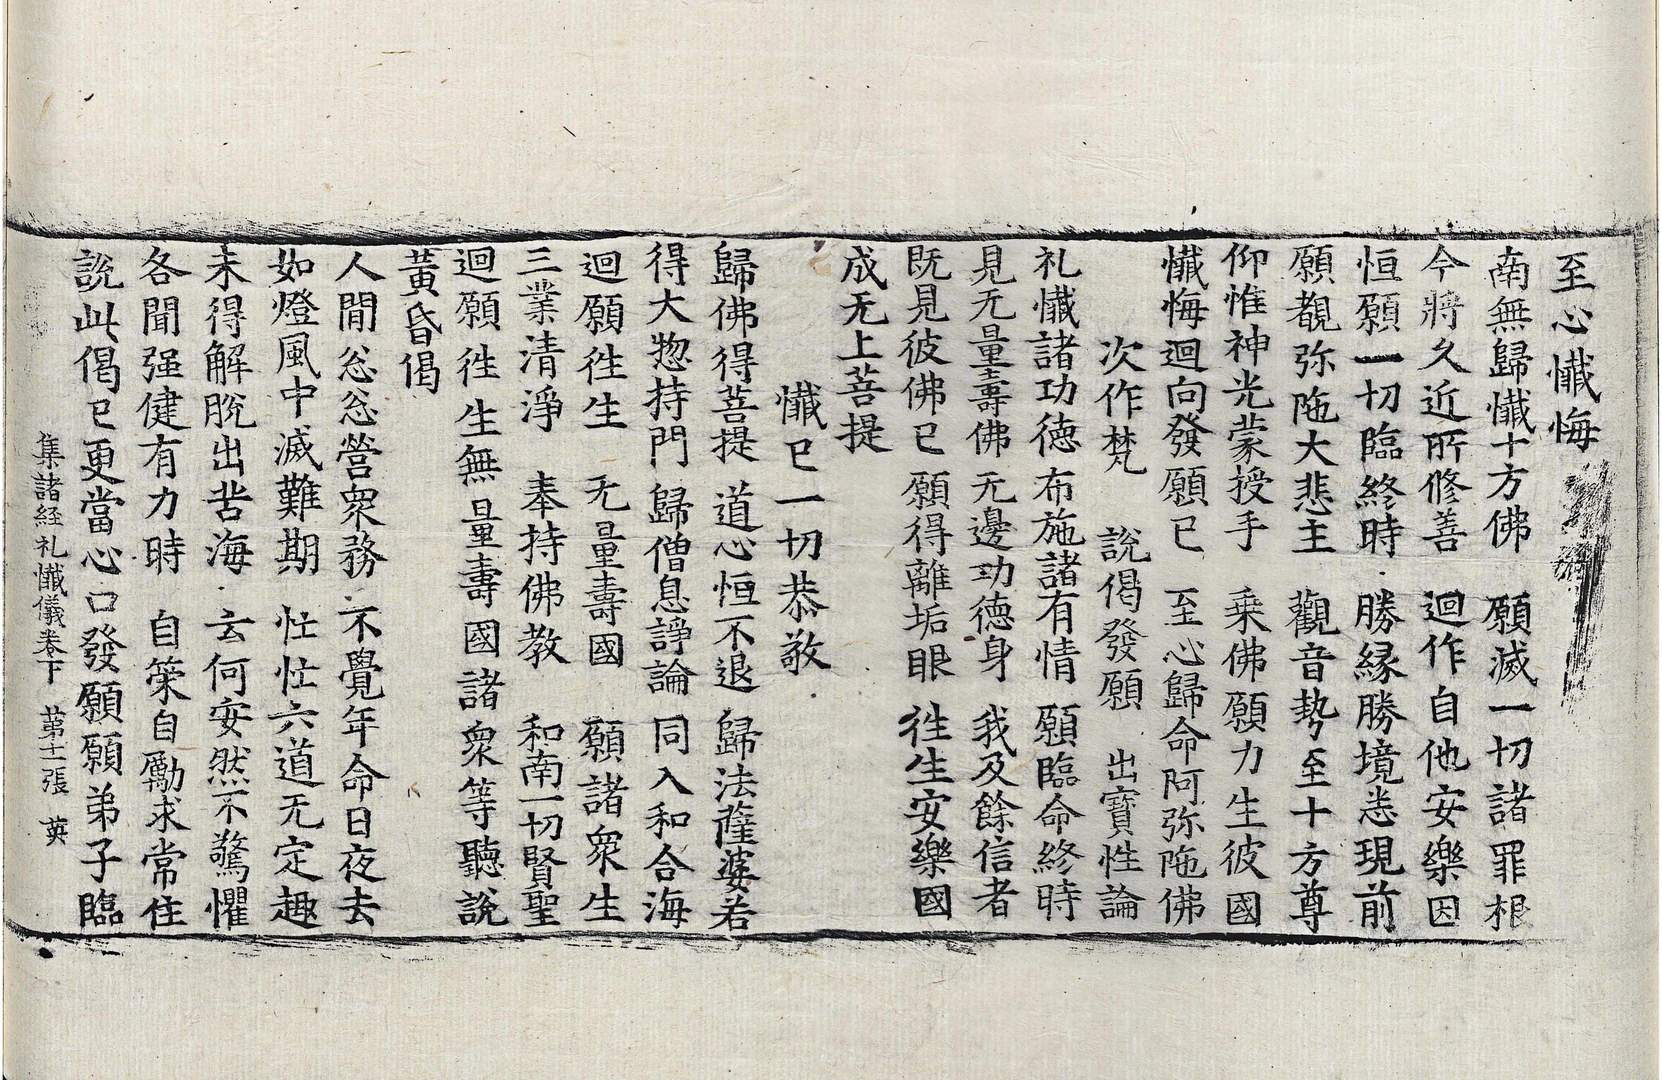 至心懺悔
南無歸懺十方佛　願滅一切諸罪根
今將久近所修善　迴作自他安樂因
恒願一切臨終時　勝縁勝境悉現前
願覩弥陁大悲主　觀音勢至十方尊
仰惟神光蒙授手　乗佛願力生彼國
懺悔迴向發願已　至心歸命阿弥陁佛
次作梵　說偈發願　出寶性論
礼懺諸功德　布施諸有情　願臨命終時
見无量壽佛　无邊功德身　我及餘信者
既見彼佛已　願得離垢眼　徃生安樂國
成无上菩提
懺已一切恭敬
歸佛得菩提　道心恒不退　歸法薩婆若
得大惣持門　歸僧息諍論　同入和合海
迴願徃生　无量壽國　願諸衆生
三業清淨　奉持佛教　和南一切賢聖
迴願徃生無量壽國諸衆等聽說
黃昏偈
人間忩忩營衆務　不覺年命日夜去
如燈風中滅難期　忙忙六道无定趣
未得解脫出苦海　云何安然不驚懼
各聞强健有力時　自策自勵求常住
說此偈已更當心口發願願弟子臨
集諸經礼懺儀卷下　第十二張　英